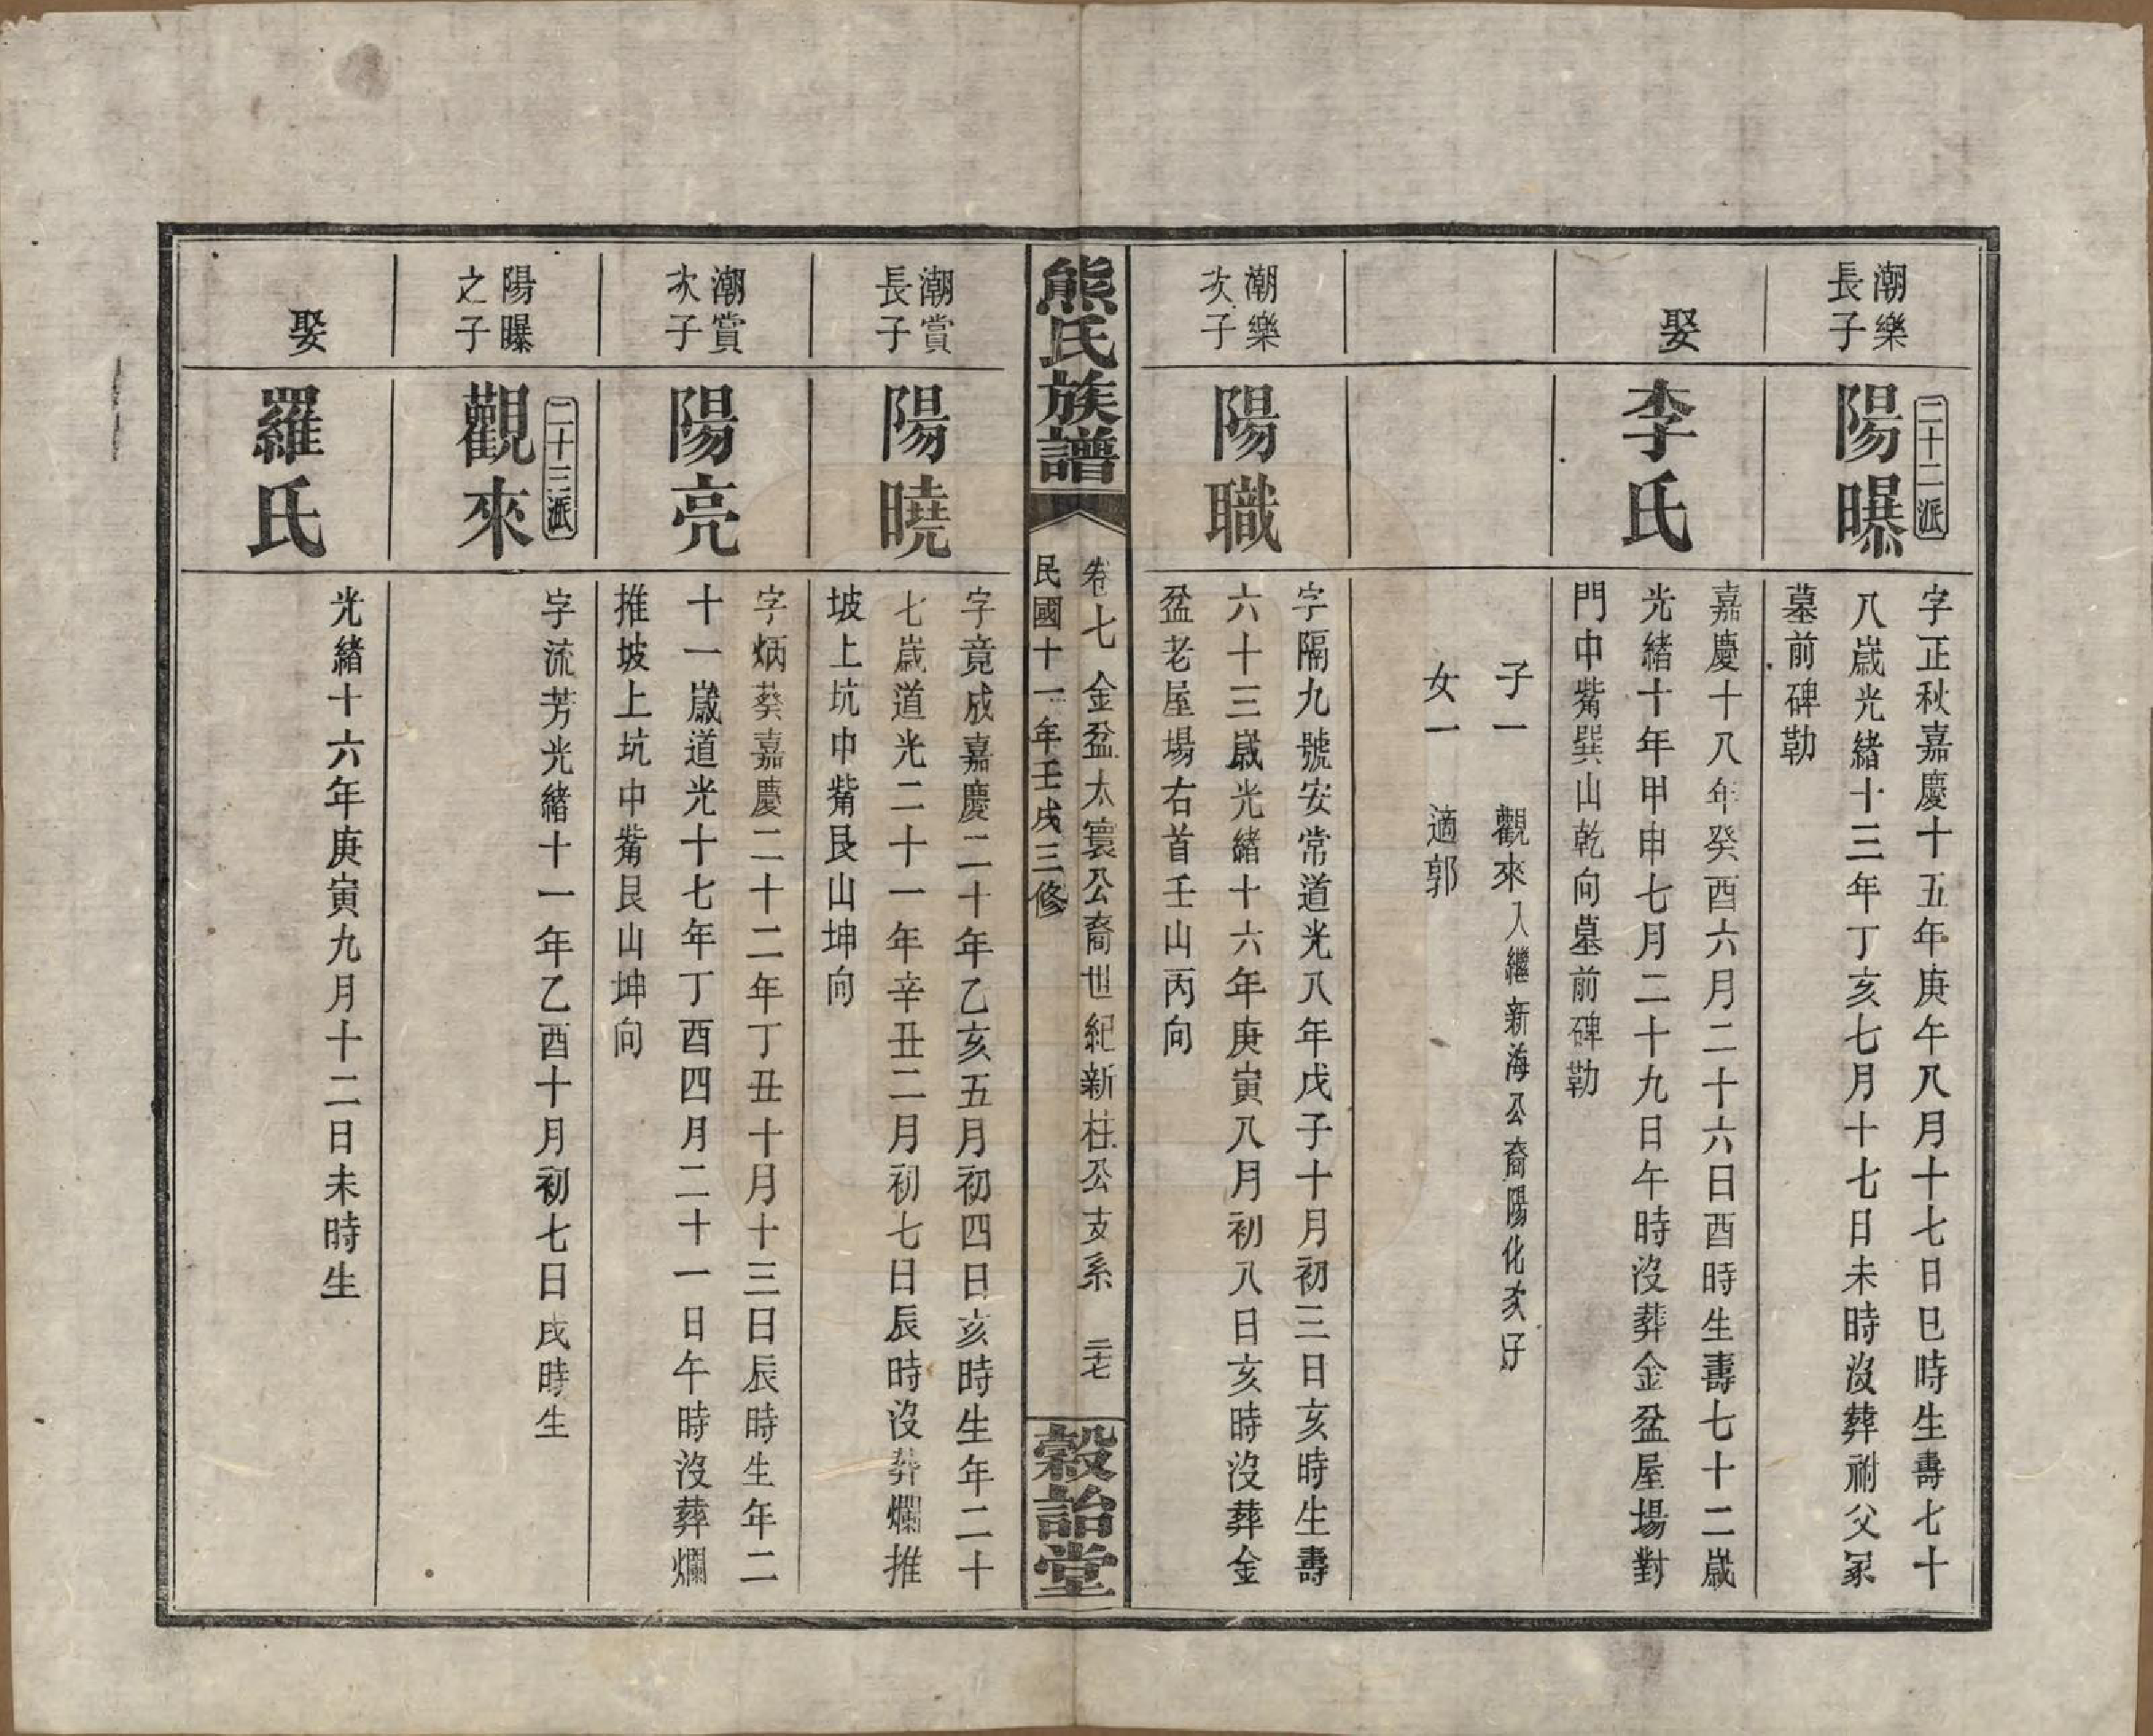 潮樂
長子
二十二派
陽曝
字正秋嘉慶十五年庚午八月十七日巳時生壽七十
八歲光緒十三年丁亥七月十七日未時沒葬祔父冢
墓前碑勒
娶
李氏
嘉慶十八年癸酉六月二十六日酉時生壽七十二歲
光緒十年甲申七月二十九日午時沒葬金盆屋場對
門中觜巽山乾向墓前碑勒
子一 觀來入繼新海公裔陽化次子
女一 適郭
潮樂
次子
陽職
字隔九號安常道光八年戊子十月初三日亥時生壽
六十三歲光緒十六年庚寅八月初八日亥時沒葬金
盆老屋場右首壬山丙向
熊氏族譜
卷七 金盆太寰公裔世紀新柱公支系 二十七
民國十一年壬戌三修
穀詒堂
潮賞
長子
陽曉
字竟成嘉慶二十年乙亥五月初四日亥時生年二十
七歲道光二十一年辛丑二月初七日辰時沒葬爛推
坡上坑中觜艮山坤向
潮賞
次子
陽亮
字炳葵嘉慶二十二年丁丑十月十三日辰時生年二
十一歲道光十七年丁酉四月二十一日午時沒葬爛
推坡上坑中觜艮山坤向
陽曝
之子
二十三派
觀來
字流芳光緒十一年乙酉十月初七日戌時生
娶
羅氏
光緒十六年庚寅九月十二日未時生